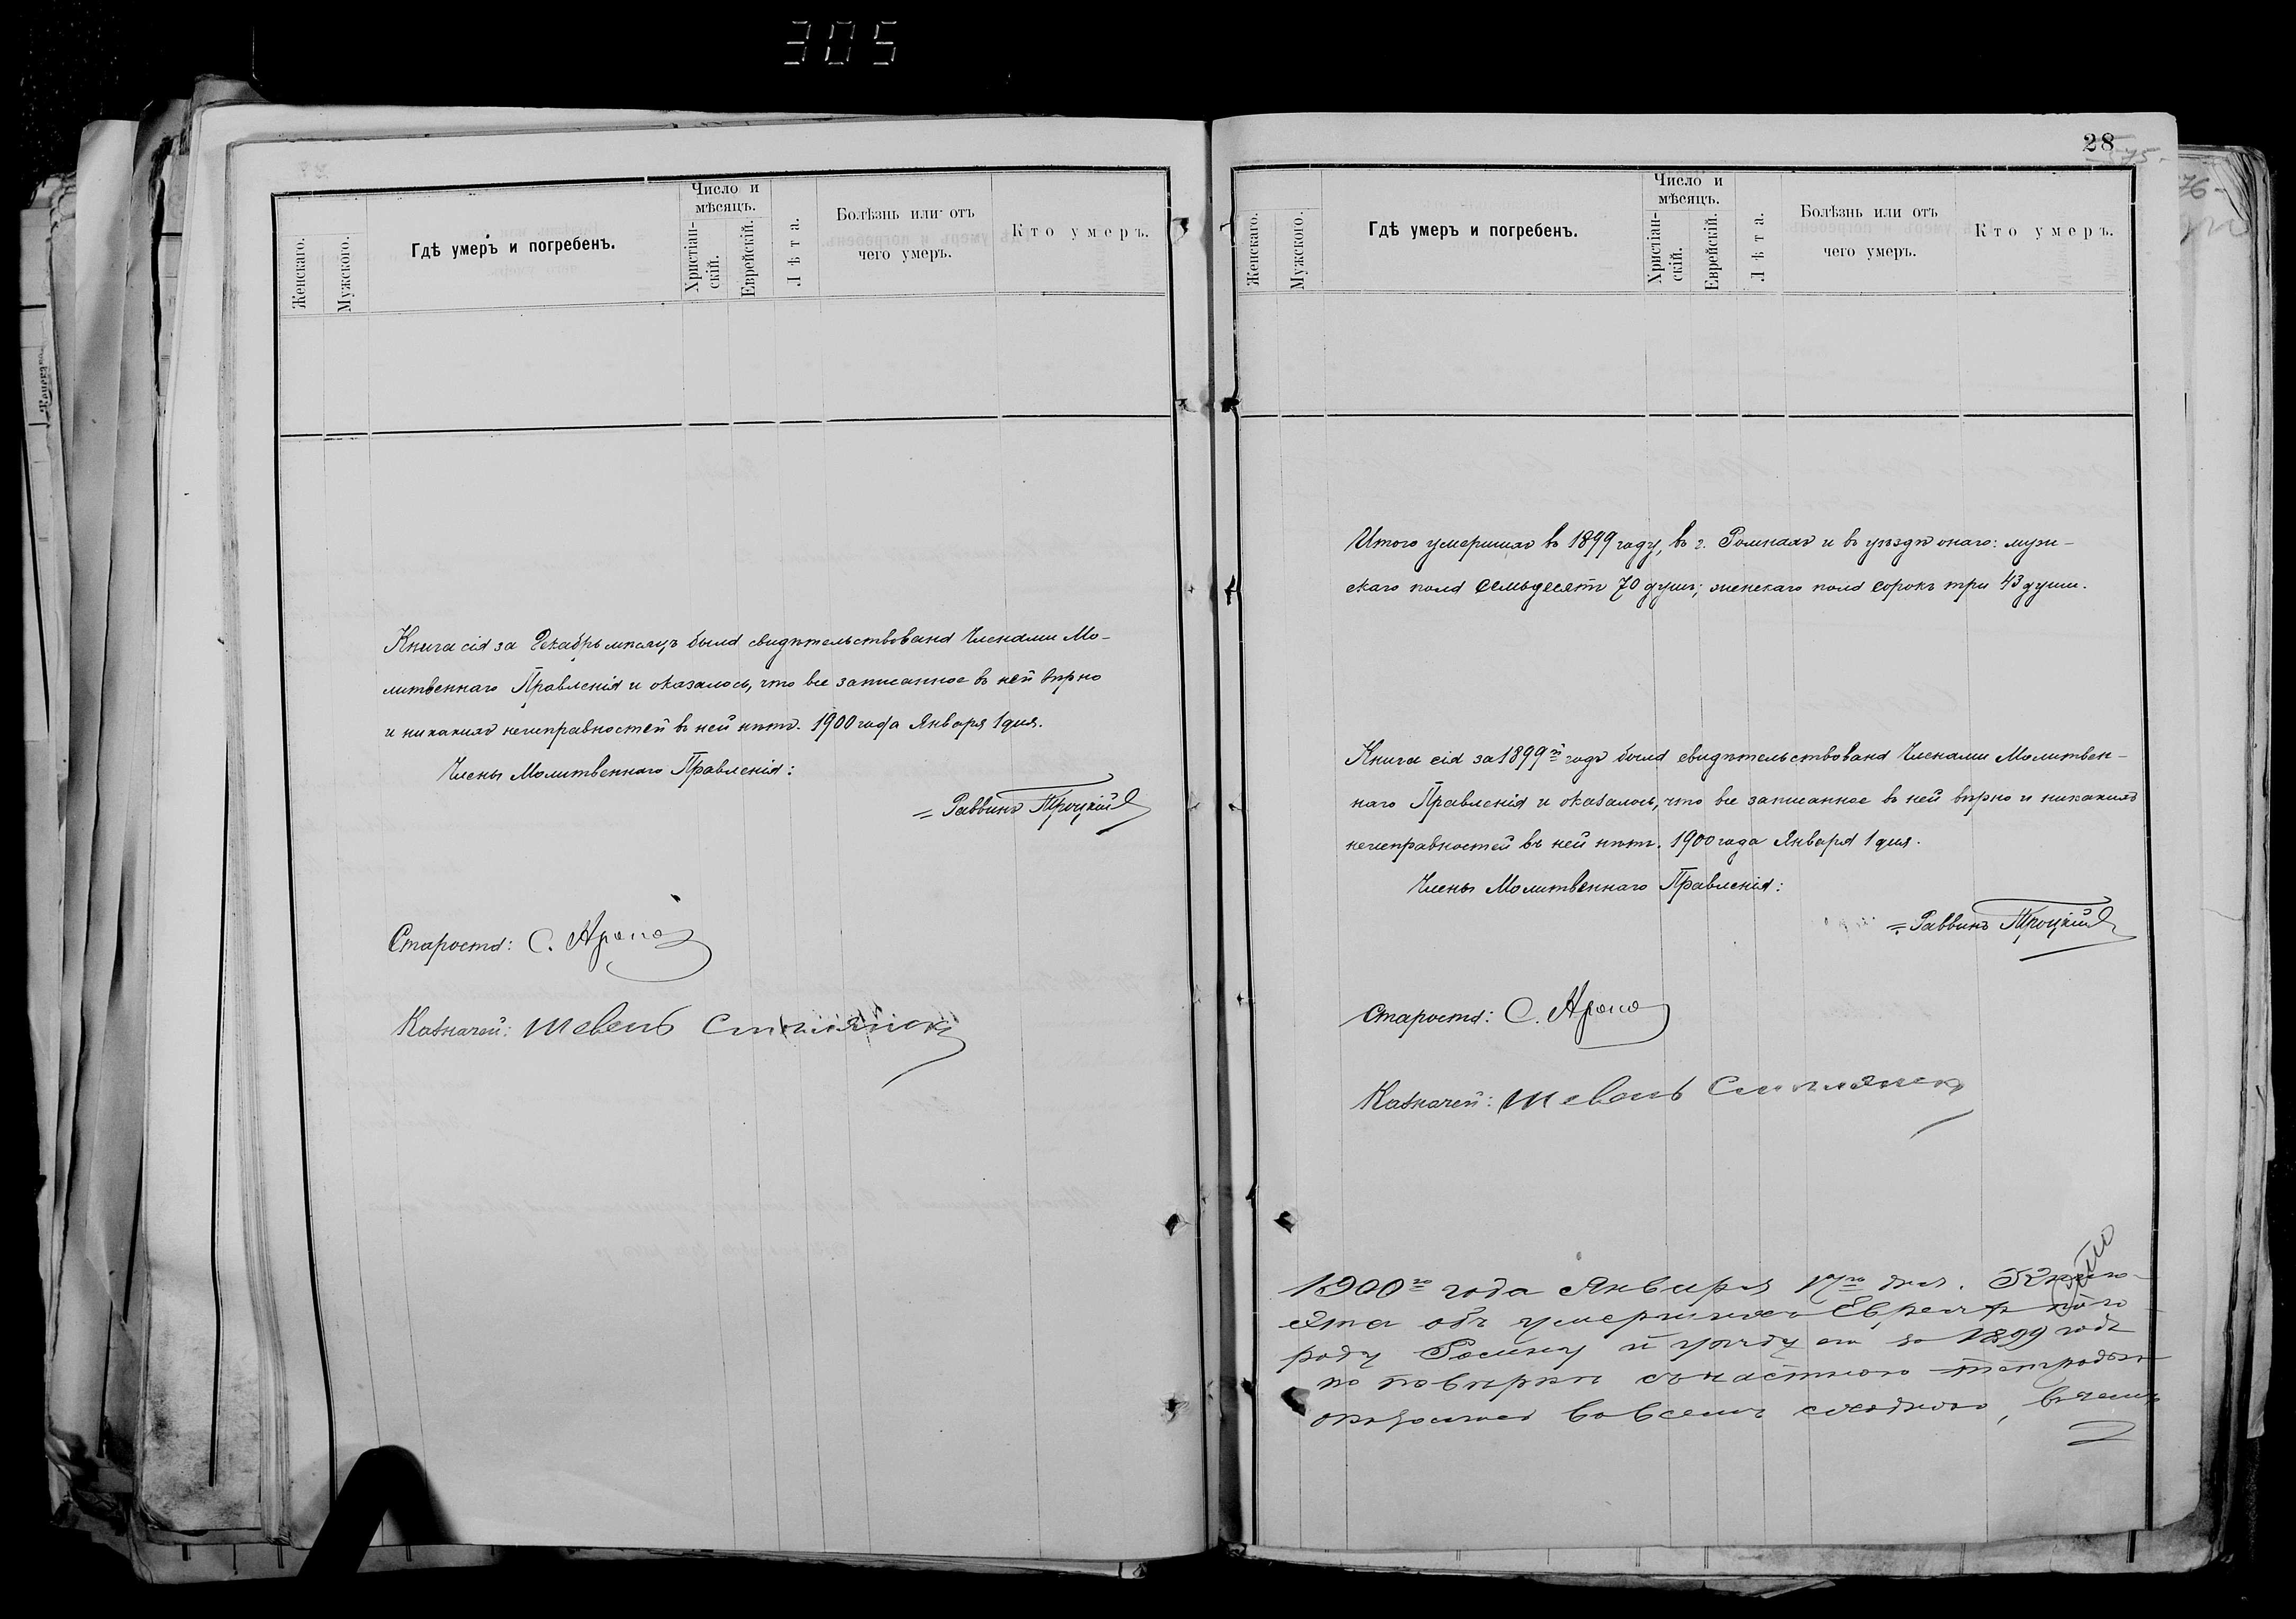 305
Женскаго.
Мужскаго.
Гдѣ умеръ и погребенъ.
Число и
мѣсяцъ.
Христіан-
скій.
Еврейскій.
Лѣта.
Болѣзнь или отъ
чего умеръ.
Кто умеръ.
Книга сія за Декабрь мѣсяцъ была свидѣтельствована Членами Мо-
литвеннаго Правленія и оказалось, что все записанное въ ней вѣрно
и никакихъ неисправностей въ ней нѣтъ. 1900 года Января 1 дня.
Члены Молитвеннаго Правленія:
= Раввинъ Троцкій
Староста: С.
Казначей:
28
75
76
Женскаго.
Мужскаго.
Гдѣ умеръ и погребенъ.
Число и
мѣсяцъ.
Христіан-
скій.
Еврейскій.
Лѣта.
Болѣзнь или отъ
чего умеръ.
Кто умеръ.
Итого умершихъ въ 1899 году, въ г. Ромнахъ и въ уѣздѣ онаго: муж-
скаго пола семьдесятъ 70 душъ; женскаго пола сорокъ три 43 души.
Книга сія за 1899й годъ была свидѣтельствована Членами Молитвен-
наго Правленія и оказалось, что все записанное въ ней вѣрно и никакихъ
неисправностей въ ней нѣтъ. 1900 года Января 1 дня.
Члены Молитвеннаго Правленія:
= Раввинъ Троцкій
Староста: С.
Казначей:
1900го года Января дня.
эта объ умершихъ Евреяхъ по го-
роду Ромну и уѣзду его за 1899 годъ
по повѣркѣ съ частною тетрадью
оказалась во всемъ сходною, въ чемъ